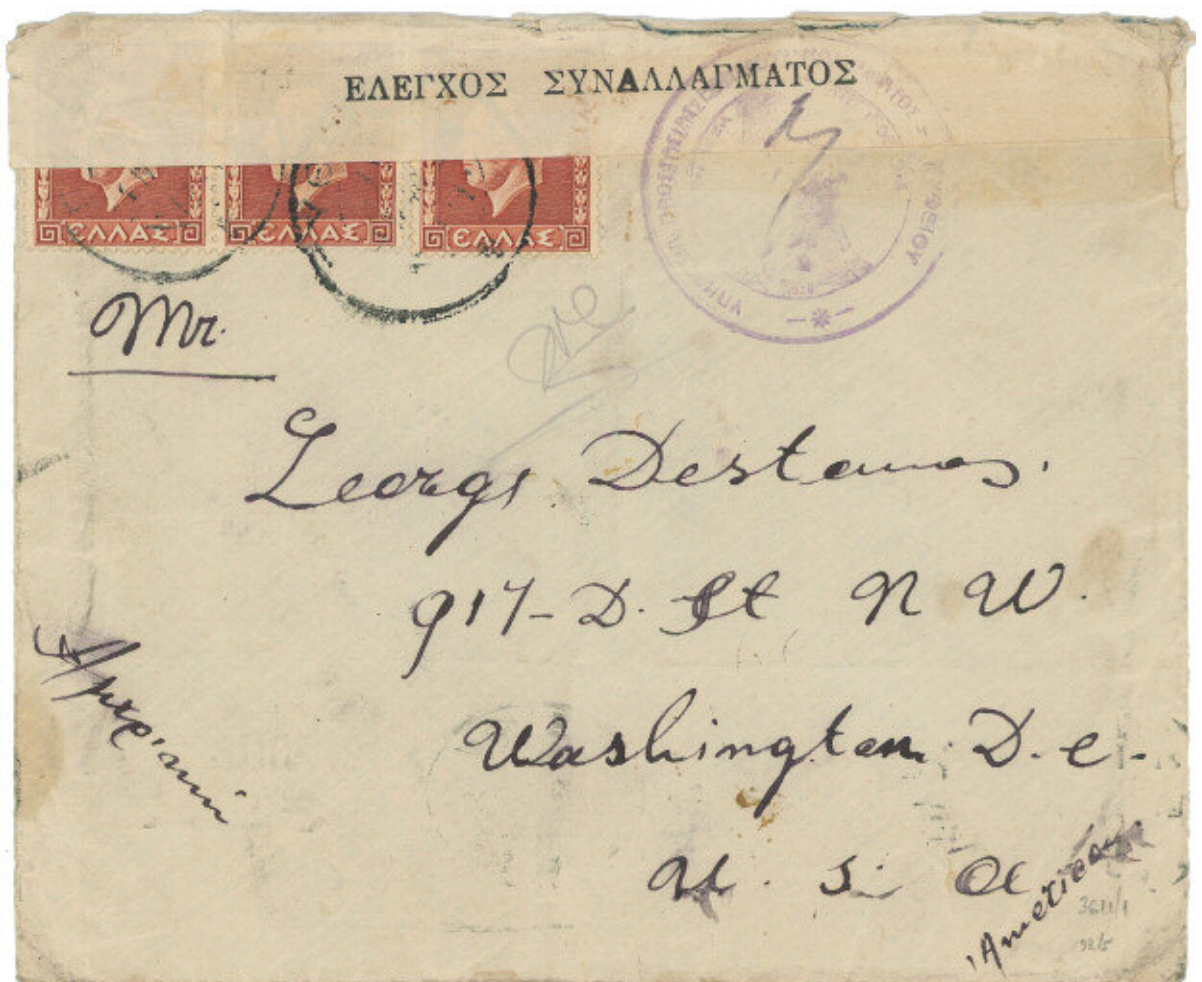 ΕΛΕΓΧΟΣ ΣΥΝΔΛΛΑΓΜΑΤΟΣ
ΕΛΛΑΣ ΕΛΛΑΣ ΕΛΛΑΣ
Mr.
George Destounas.
917-D. St N W.
Washington D.C.
U. S. A
Αμερική
America
3611/1